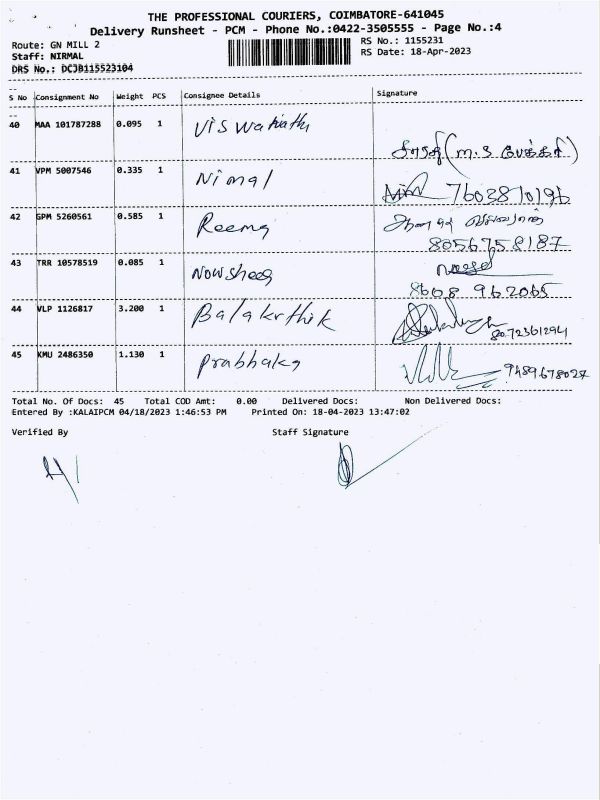 THE PROFESSIONAL COURIERS, COIMBATORE-641045
Delivery Runsheet - PCM - Phone No.:0422-3505555 - Page No.:4
Route: GN MILL 2
RS No.: 1155231
Staff: NIRMAL
RS Date: 18-Apr-2023
DRS No.: DCJB115523104
S No Consignment No Weight PCS Consignee Details Signature
40 MAA 101787288 0.095 1 Viswanathi
(M.S
41 VPM 5007546 0.335 1 Nimal
7603810196
42 GPM 5260561 0.585 1 Reema
8056758187
43 TRR 10578519 0.085 1 Nowsheeq
8608 962065
44 VLP 1126817 3.200 1 Balakrthik
8072361294
45 KMU 2486350 1.130 1 Prabhaka
9489678027
Total No. Of Docs: 45 Total COD Amt: 0.00 Delivered Docs: Non Delivered Docs:
Entered By :KALAIPCM 04/18/2023 1:46:53 PM Printed On: 18-04-2023 13:47:02
Verified By Staff Signature